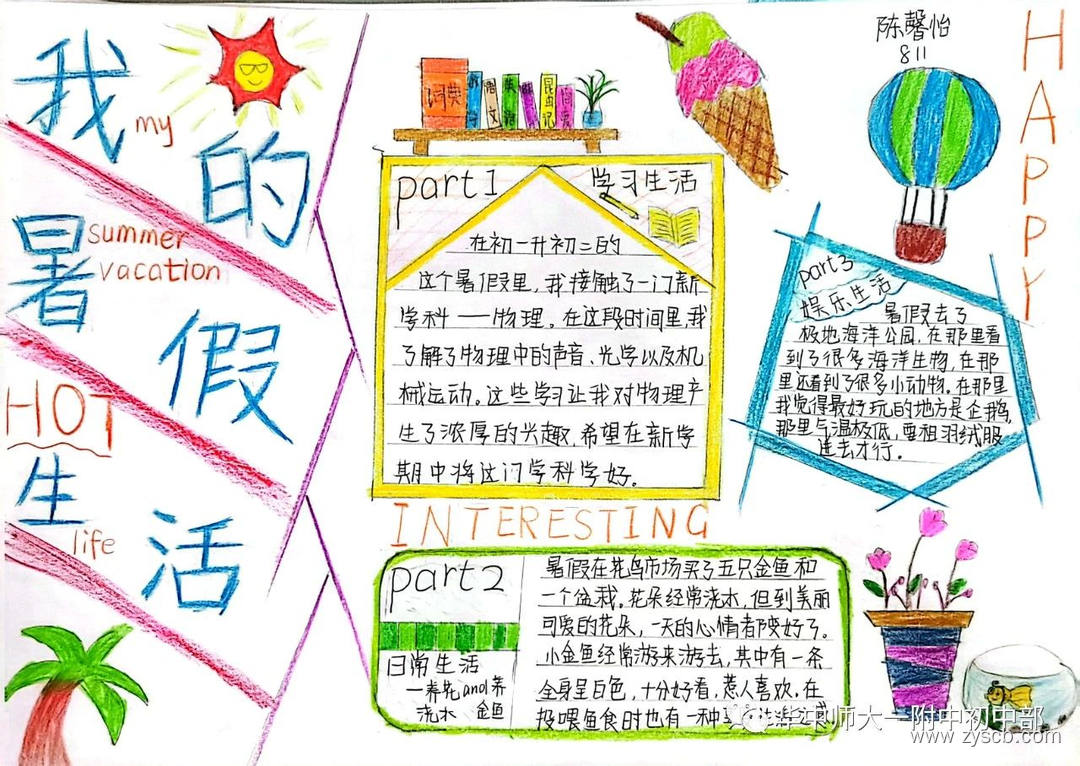 我
my
的
暑
summer
vacation
假
HOT
生
life
活
词典
语文
昆虫记
part1
学习生活
在初一升初二的
这个暑假里,我接触了一门新
学科——物理。在这段时间里,我
了解了物理中的声音、光学以及机
械运动。这些学习让我对物理产
生了浓厚的兴趣,希望在新学
期中将这门学科学好。
INTERESTING
part2
日常生活
一养花and养
浇水 金鱼
暑假在花鸟市场买了五只金鱼和
一个盆栽。花朵经常浇水,但到美丽
可爱的花朵,一天的心情者陵好了。
小金鱼经常游来游去,其中有一条
全身呈白色,十分好看,惹人喜欢。在
投喂鱼食时也有一种
陈馨怡
811
HAPPY
part3
娱乐生活
暑假去了
极地海洋公园,在那里看
到了很多海洋生物,在那
里还看到了很多小动物。在那里
我觉得最好玩的地方是企鹅,
那里气温极低,要租羽绒服
进去才行。
华中师大一附中初中部
www.zyscb.com